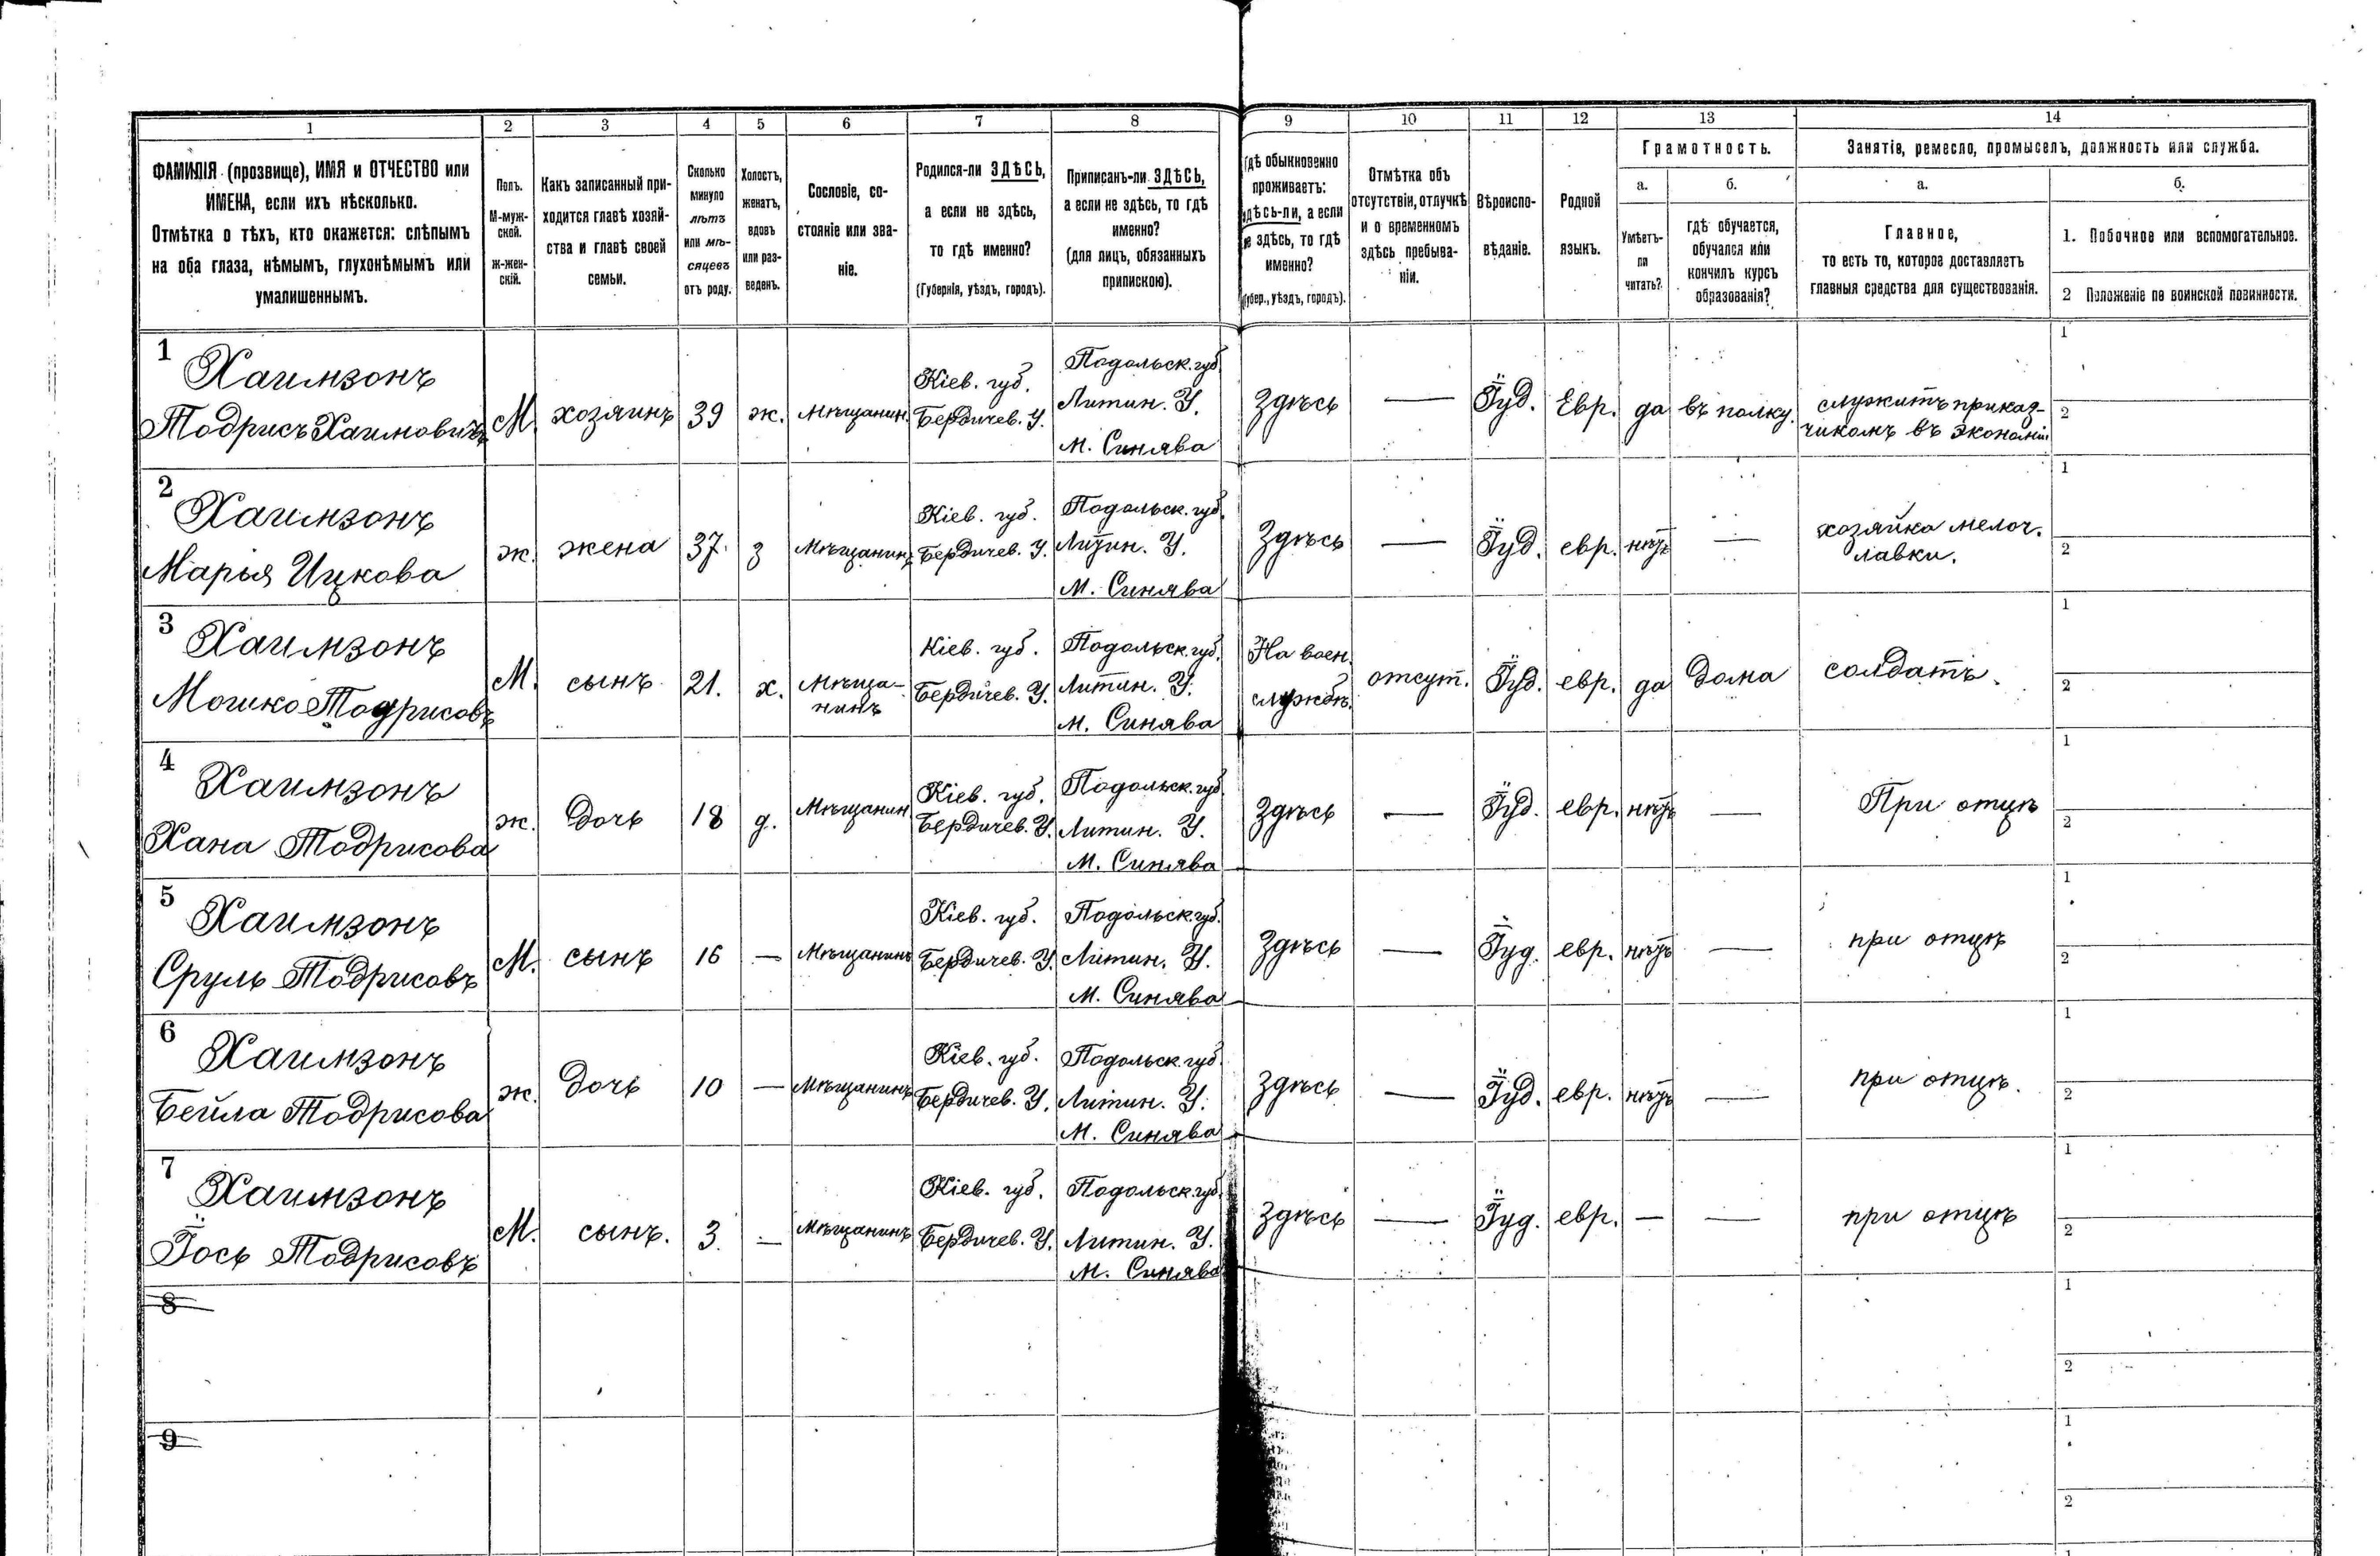 1 2 3 4 5 6 7 8 9 10 11 12 13 14
ФАМИЛІЯ (прозвище), ИМЯ и ОТЧЕСТВО или
ИМЕНА, если ихъ нѣсколько.
Отмѣтка о тѣхъ, кто окажется: слѣпымъ
на оба глаза, нѣмымъ, глухонѣмымъ или
умалишеннымъ.
Полъ.
М-муж-
ской.
ж-жен-
скій.
Какъ записанный при-
ходится главѣ хозяй-
ства и главѣ своей
семьи.
Сколько
минуло
лѣтъ
или мѣ-
сяцевъ
отъ роду.
Холостъ,
женатъ,
вдовъ
или раз-
веденъ.
Сословіе, со-
стояніе или зва-
ніе.
Родился-ли ЗДѢСЬ,
а если не здѣсь,
то гдѣ именно?
(Губернія, уѣздъ, городъ).
Приписанъ-ли ЗДѢСЬ,
а если не здѣсь, то гдѣ
именно?
(для лицъ, обязанныхъ
припискою).
гдѣ обыкновенно
проживаетъ:
здѣсь-ли, а если
не здѣсь, то гдѣ
именно?
(губер., уѣздъ, городъ).
Отмѣтка объ
отсутствіи, отлучкѣ
и о временномъ
здѣсь пребыва-
ніи.
Вѣроиспо-
вѣданіе.
Родной
языкъ.
Грамотность.
а.
Умѣетъ-
ли
читать?
б.
гдѣ обучается,
обучался или
кончилъ курсъ
образованія?
Занятіе, ремесло, промыселъ, должность или служба.
а.
Главное,
то есть то, которое доставляетъ
главныя средства для существованія.
б.
1. Побочное или вспомогательное.
2 Положеніе по воинской повинности.
1
Хаимзонъ
Тодрисъ Хаимовичъ
М. хозяинъ 39 ж. мѣщанин.
Кіев. губ.
Бердичев. У.
Подольск. губ
Литин. У.
м. Синява
Здѣсь — Іуд. Евр. да въ полку.
служитъ приказ-
чикомъ въ экономіи
1
2
2
Хаимзонъ
Марья Ицкова
ж. жена 37. з мѣщанинъ
Кіев. губ.
Бердичев. У.
Подольск. губ.
Литин. У.
м. Синява
Здѣсь — Іуд. евр. нѣтъ —
хозяйка мелоч.
лавки.
1
2
3
Хаимзонъ
Мошко Тодрисовъ
М. сынъ 21. х.
мѣща-
нинъ
Кіев. губ.
Бердичев. У.
Подольск. губ.
Литин. У.
м. Синява
На воен.
службѣ.
отсут. Іуд. евр. да дома солдатъ.
1
2
4
Хаимзонъ
Хана Тодрисова
ж. дочь 18 д. мѣщанин
Кіев. губ.
Бердичев. У.
Подольск. губ.
Литин. У.
м. Синява
Здѣсь — Іуд. евр. нѣтъ — При отцѣ
1
2
5
Хаимзонъ
Сруль Тодрисовъ
М. сынъ 16 — мѣщанинъ
Кіев. губ.
Бердичев. У.
Подольск. губ.
Литин. У.
м. Синява
Здѣсь — Іуд. евр. нѣтъ — при отцѣ
1
2
6
Хаимзонъ
Бейла Тодрисова
ж. дочь 10 — мѣщанинъ
Кіев. губ.
Бердичев. У.
Подольск. губ.
Литин. У.
м. Синява
Здѣсь — Іуд. евр. нѣтъ — при отцѣ.
1
2
7
Хаимзонъ
Іось Тодрисовъ
М. сынъ. 3. — мѣщанинъ
Кіев. губ.
Бердичев. У.
Подольск. губ.
Литин. У.
м. Синява
Здѣсь — Іуд. евр. — — при отцѣ
1
2
8
1
2
9
1
2
1